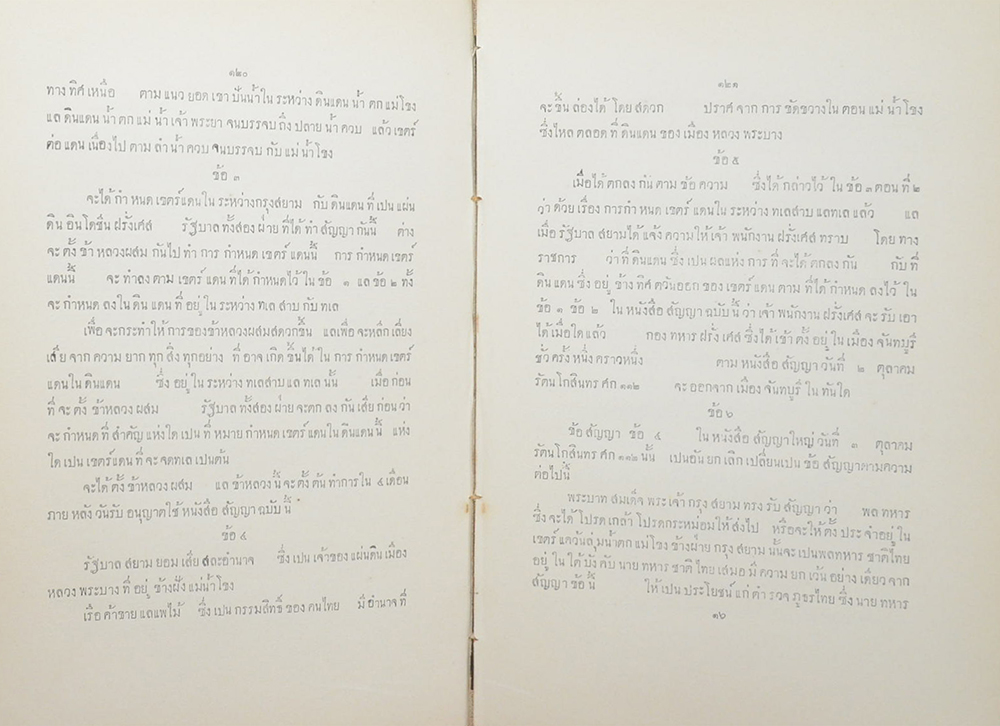 ๑๒๐
ทาง ทิศ เหนือ ตาม แนว ยอด เขา ปันน้ำ ใน ระหว่าง ดินแดน น้ำ ตก แม่ โขง
แล ดินแดน น้ำ ตก แม่ น้ำ เจ้า พระยา จน บรรจบ ถึง ปลาย น้ำ ควบ แล้ว เขตร์
ต่อ แดน เนื่อง ไป ตาม ลำ น้ำ ควบ จน บรรจบ กับ แม่ น้ำ โขง
ข้อ ๓
จะ ได้ กำ หนด เขตร์ แดน ใน ระหว่าง กรุง สยาม กับ ดินแดน ที่ เปน แผ่น
ดิน อินโดชีน ฝรั่งเศส รัฐบาล ทั้ง สอง ฝ่าย ที่ ได้ ทำ สัญญา กัน นี้ ต่าง
จะ ตั้ง ข้า หลวง ผสม กัน ไป ทำ การ กำหนด เขตร์ แดน นี้ การ กำหนด เขตร์
แดน นี้ จะ ทำ ลง ตาม เขตร์ แดน ที่ ได้ กำหนด ไว้ ใน ข้อ ๑ แล ข้อ ๒ ทั้ง
จะ กำหนด ลง ใน ดิน แดน ที่ อยู่ ใน ระหว่าง ทเล สาบ กับ ทเล
เพื่อ จะ กระทำ ให้ การ ของ ข้าหลวง ผสม สดวก ขึ้น แล เพื่อ จะ หลีก เลี่ยง
เสีย จาก ความ ยาก ทุก สิ่ง ทุก อย่าง ที่ อาจ เกิด ขึ้น ได้ ใน การ กำหนด เขตร์
แดน ใน ดินแดน ซึ่ง อยู่ ใน ระหว่าง ทเลสาบ แล ทเล นั้น เมื่อ ก่อน
ที่ จะ ตั้ง ข้าหลวง ผสม รัฐบาล ทั้งสอง ฝ่าย จะ ตก ลง กัน เสีย ก่อน ว่า
จะ กำหนด ที่ สำคัญ แห่ง ใด เปน ที่ หมาย กำหนด เขตร์ แดน ใน ดินแดน นี้ แห่ง
ใด เปน เขตร์ แดน ที่ จะ จด ทเล เปนต้น
จะ ได้ ตั้ง ข้าหลวง ผสม แล ข้าหลวง นี้ จะ ตั้ง ต้น ทำ การ ใน ๔ เดือน
ภาย หลัง วัน รับ อนุญาต ใช้ หนังสือ สัญญา ฉบับ นี้
ข้อ ๔
รัฐบาล สยาม ยอม เสีย สละ อำนาจ ซึ่ง เปน เจ้า ของ แผ่นดิน เมือง
หลวง พระบาง ที่ อยู่ ข้าง ฝั่ง แม่ น้ำ โขง
เรือ ค้า ขาย แล แพ ไม้ ซึ่ง เปน กรรมสิทธิ์ ของ คน ไทย มี อำนาจ ที่
๑๒๑
จะ ขึ้น ล่อง ได้ โดย สดวก ปราศ จาก การ ขัดขวาง ใน ตอน แม่ น้ำ โขง
ซึ่ง ไหล ตลอด ที่ ดินแดน ของ เมือง หลวง พระบาง
ข้อ ๕
เมื่อ ได้ ตกลง กัน ตาม ข้อ ความ ซึ่ง ได้ กล่าว ไว้ ใน ข้อ ๓ ตอน ที่ ๒
ว่า ด้วย เรื่อง การ กำ หนด เขตร์ แดน ใน ระหว่าง ทเลสาบ แล ทเล แล้ว แล
เมื่อ รัฐบาล สยาม ได้ แจ้ง ความ ให้ เจ้า พนักงาน ฝรั่งเศส ทราบ โดย ทาง
ราชการ ว่า ที่ ดินแดน ซึ่ง เปน ผล แห่ง การ ที่ จะ ได้ ตกลง กัน กับ ที่
ดิน แดน ซึ่ง อยู่ ข้าง ทิศ ตวันออก ของ เขตร์ แดน ตาม ที่ ได้ กำหนด ลง ไว้ ใน
ข้อ ๑ ข้อ ๒ ใน หนังสือ สัญญา ฉบับ นี้ ว่า เจ้า พนักงาน ฝรั่งเศส จะ รับ เอา
ได้ เมื่อ ใด แล้ว กอง ทหาร ฝรั่ง เศส ซึ่ง ได้ เข้า ตั้ง อยู่ ใน เมือง จันทบูรี
ชั่ว ครั้ง หนึ่ง คราว หนึ่ง ตาม หนังสือ สัญญา วันที่ ๒ ตุลาคม
รัตน โกสินทร ศก ๑๑๒ จะ ออก จาก เมือง จันทบูรี ใน ทันใด
ข้อ ๖
ข้อ สัญญา ข้อ ๔ ใน หนังสือ สัญญา ใหญ่ วันที่ ๓ ตุลาคม
รัตน โกสินทร ศก ๑๑๒ นั้น เปน อัน ยก เลิก เปลี่ยน เปน ข้อ สัญญา ตาม ความ
ต่อ ไป นี้
พระบาท สมเด็จ พระ เจ้า กรุง สยาม ทรง รับ สัญญา ว่า พล ทหาร
ซึ่ง จะ ได้ โปรด เกล้า โปรด กระหม่อม ให้ ส่ง ไป หรือ จะ ให้ ตั้ง ประ จำ อยู่ ใน
เขตร์ แคว้น ลุ่ม น้ำ ตก แม่ โขง ข้าง ฝ่าย กรุง สยาม นั้น จะ เปน พล ทหาร ชาติ ไทย
อยู่ ใน ใต้ บัง คับ นาย ทหาร ชาติ ไทย เสมอ มี ความ ยก เว้น อย่าง เดียว จาก
สัญญา ข้อ นี้ ให้ เปน ประโยชน์ แก่ ตำ รวจ ภูธร ไทย ซึ่ง นาย ทหาร
๑๖